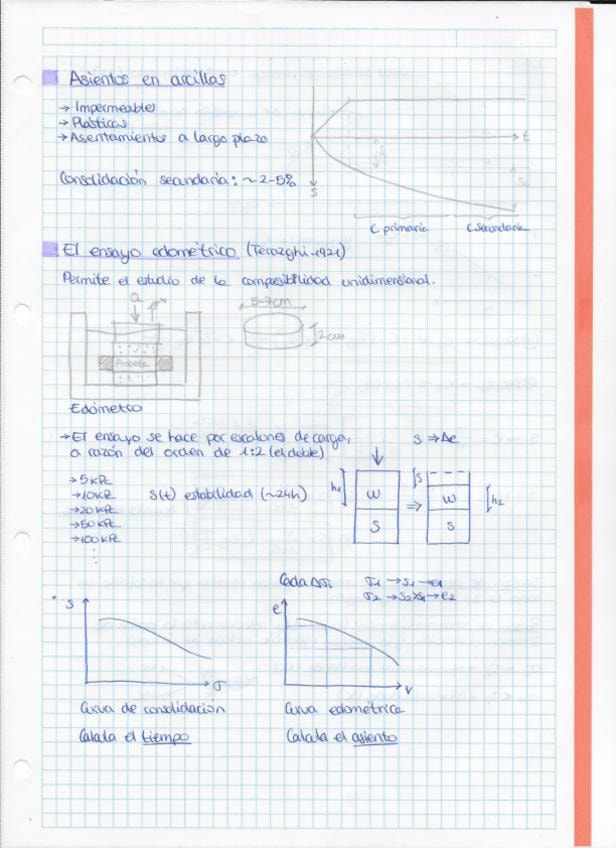 Asientos en arcillas
→ Impermeables
→ Plásticas
→ Asentamientos a largo plazo
t
Consolidación secundaria: ~2-5%
s
C. primaria
C. secundaria
El ensayo edométrico (Terazghi 1921)
Permite el estudio de la compesibilidad unidimensional.
Q
5-7cm
2cm
Probeta
Edómetro
→ El ensayo se hace por escalones de carga,
a razón del orden de 1:2 (el doble)
S ⇒ Δe
→ 5 KPa
→ 10 KPa
S(t) estabilidad (~24h)
→ 20 KPa
→ 50 KPa
→ 100 KPa
h1
W
S
⇒
S
W
S
h2
Cada Δσi
σ1 → S1 → e1
σ2 → S2>S1 → e2
S
σ
e
Curva de consolidación
Curva edométrica
Calcula el tiempo
Calcula el asiento